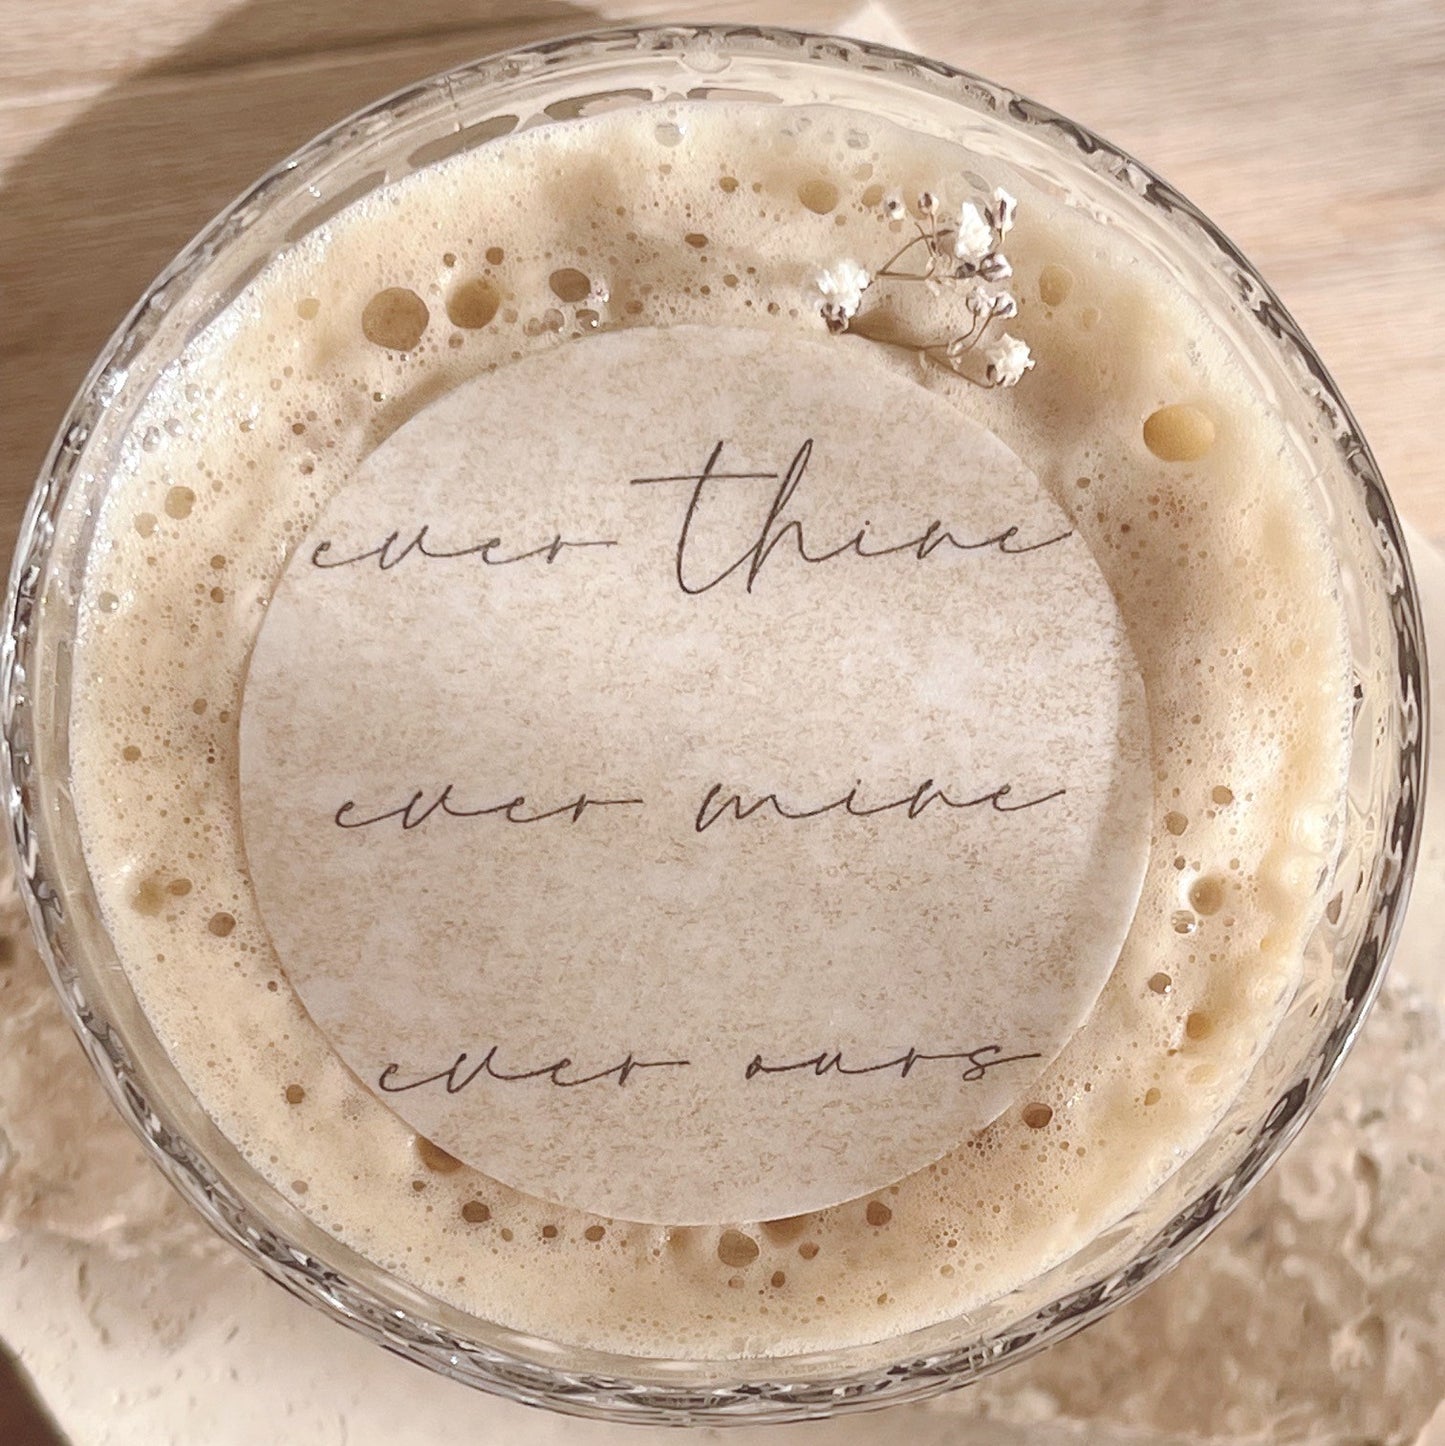 ever thine
ever mine
ever ours